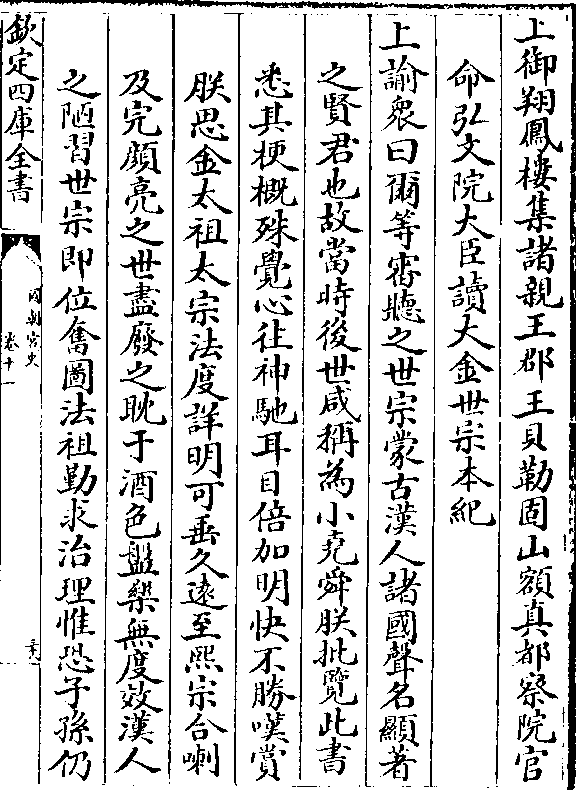 上御翔鳳樓集諸親王郡王貝勒固山額真都察院官
命弘文院大臣讀大金世宗本紀
上諭衆曰爾等審聽之世宗蒙古漢人諸國聲名顯著
之賢君也故當時後世咸稱為小堯舜朕批覽此書
悉其梗概殊覺心往神馳耳目倍加明快不勝嘆賞
朕思金太祖太宗法度詳明可垂久遠至熙宗合喇
及完顔亮之世盡廢之耽于酒色盤樂無度效漢人
之陋習世宗即位奮圖法祖勤求治理惟恐子孫仍
欽定四庫全書
國朝宮史
卷十一